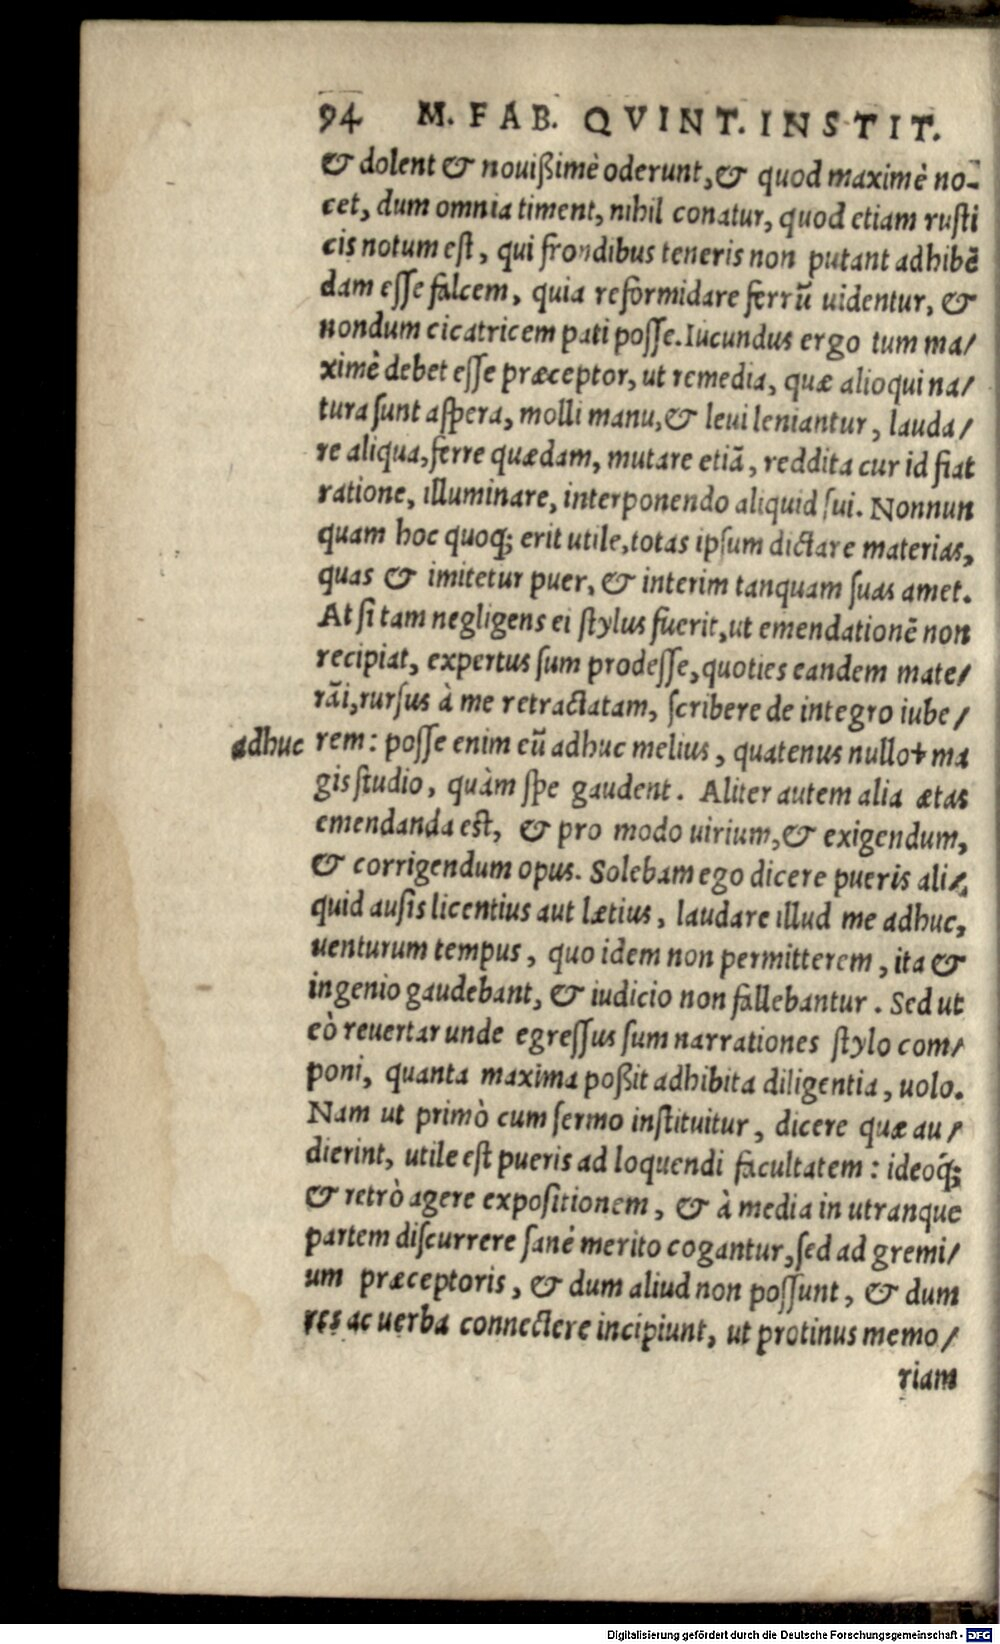 94 M. FAB. QVINT. INSTIT.
& dolent & nouißimè oderunt, & quod maximè no-
cet, dum omnia timent, nihil conatur, quod etiam rusti
cis notum est, qui frondibus teneris non putant adhibē
dam esse falcem, quia reformidare ferrū uidentur, &
nondum cicatricem pati posse. Iucundus ergo tum ma/
ximè debet esse præceptor, ut remedia, quæ alioqui na/
tura sunt aspera, molli manu, & leui leniantur, lauda/
re aliqua, ferre quædam, mutare etiā, reddita cur id fiat
ratione, illuminare, interponendo aliquid sui. Nonnun
quam hoc quoq; erit utile, totas ipsum dictare materias,
quas & imitetur puer, & interim tanquam suas amet.
At si tam negligens ei stylus fuerit, ut emendationē non
recipiat, expertus sum prodesse, quoties eandem mate/
rāi, rursus à me retractatam, scribere de integro iube/
adhuc rem: posse enim eū adhuc melius, quatenus nullo+ ma
gis studio, quàm spe gaudent. Aliter autem alia ætas
emendanda est, & pro modo uirium, & exigendum,
& corrigendum opus. Solebam ego dicere pueris ali/
quid ausis licentius aut lætius, laudare illud me adhuc,
uenturum tempus, quo idem non permitterem, ita &
ingenio gaudebant, & iudicio non fallebantur. Sed ut
eò reuertar unde egressus sum narrationes stylo com/
poni, quanta maxima poßit adhibita diligentia, uolo.
Nam ut primò cum sermo instituitur, dicere quæ au/
dierint, utile est pueris ad loquendi facultatem: ideoq́;
& retrò agere expositionem, & à media in utranque
partem discurrere sanè merito cogantur, sed ad gremi/
um præceptoris, & dum aliud non possunt, & dum
res ac uerba connectere incipiunt, ut protinus memo/
riam
Digitalisierung gefördert durch die Deutsche Forschungsgemeinschaft - DFG